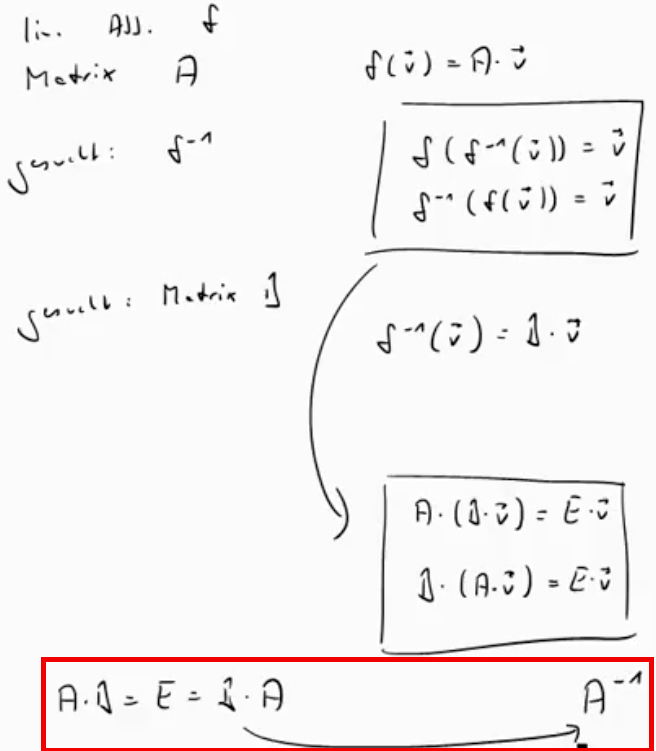 lin. Abb. f
Matrix A
f(v⃗) = A · v⃗
gesucht: f⁻¹
f(f⁻¹(v⃗)) = v⃗
f⁻¹(f(v⃗)) = v⃗
gesucht: Matrix B
f⁻¹(v⃗) = B · v⃗
A · (B · v⃗) = E · v⃗
B · (A · v⃗) = E · v⃗
A · B = E = B · A A⁻¹